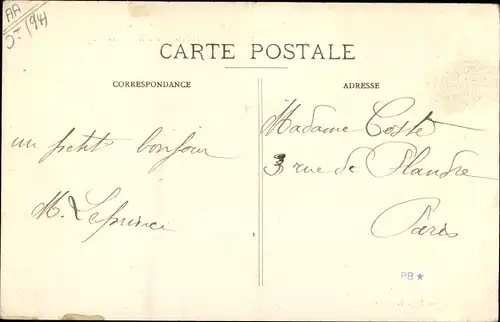 AA
CARTE POSTALE
CORRESPONDANCE
un petit bonjour
M. Leprince
ADRESSE
Madame Coste
3 rue de Flandre
Paris
PB *